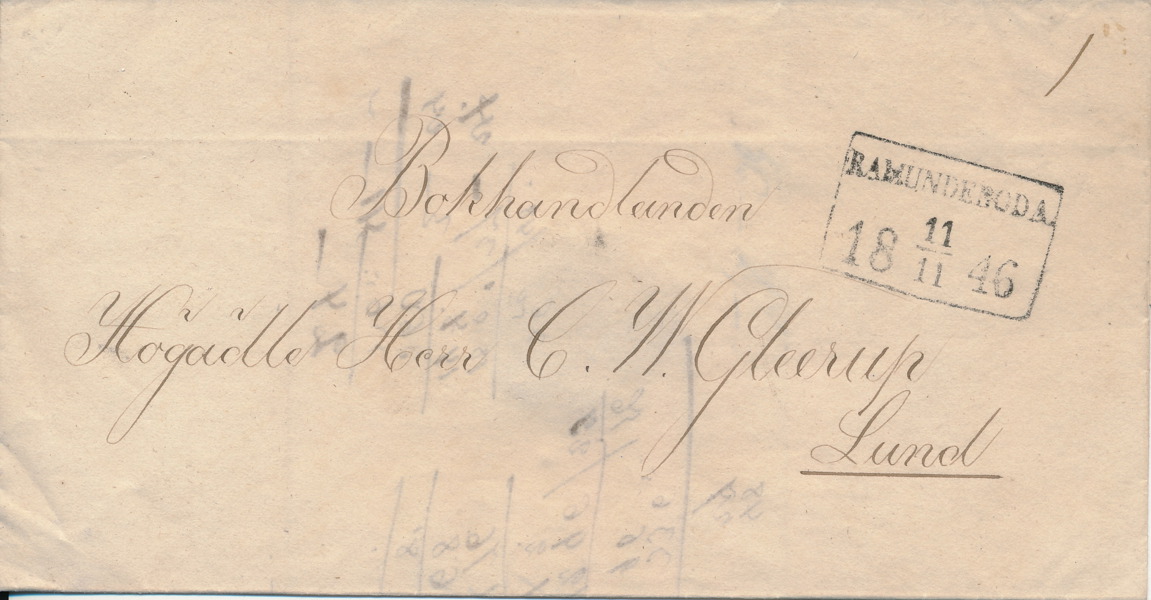 Bokhandlanden
RAMUNDEBODA.
18 11/11 46
Högädle Herr C. W. Gleerup
Lund